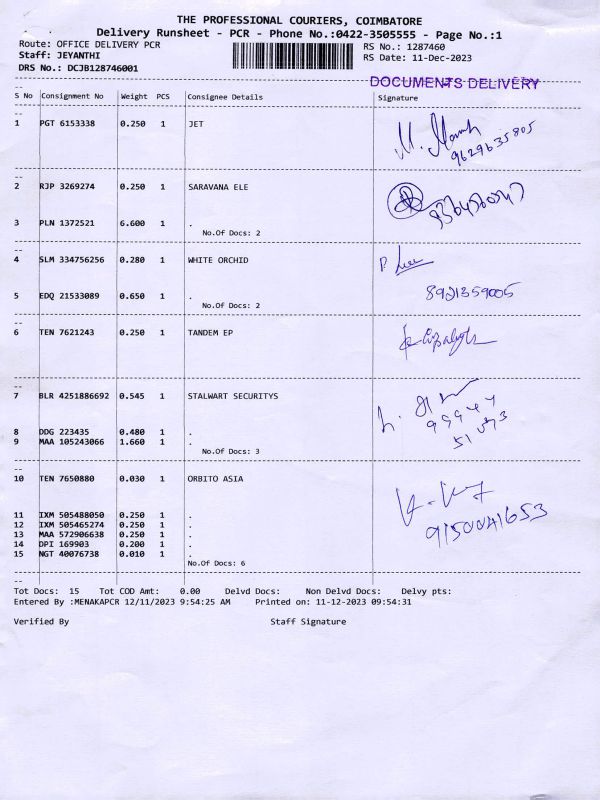 THE PROFESSIONAL COURIERS, COIMBATORE
Delivery Runsheet - PCR - Phone No.:0422-3505555 - Page No.:1
Route: OFFICE DELIVERY PCR RS No.: 1287460
Staff: JEYANTHI RS Date: 11-Dec-2023
DRS No.: DCJB128746001
DOCUMENTS DELIVERY
S No Consignment No Weight PCS Consignee Details Signature
1 PGT 6153338 0.250 1 JET
9629635805
2 RJP 3269274 0.250 1 SARAVANA ELE
3 PLN 1372521 6.600 1 .
No.Of Docs: 2
4 SLM 334756256 0.280 1 WHITE ORCHID
5 EDQ 21533089 0.650 1 .
8921359005
No.Of Docs: 2
6 TEN 7621243 0.250 1 TANDEM EP
7 BLR 4251886692 0.545 1 STALWART SECURITYS
8 DDG 223435 0.480 1 .
9 MAA 105243066 1.660 1 .
No.Of Docs: 3
10 TEN 7650880 0.030 1 ORBITO ASIA
11 IXM 505488050 0.250 1 .
12 IXM 505465274 0.250 1 .
13 MAA 572906638 0.250 1 .
14 DPI 169903 0.200 1 .
15 NGT 40076738 0.010 1 .
9150041653
No.Of Docs: 6
Tot Docs: 15 Tot COD Amt: 0.00 Delvd Docs: Non Delvd Docs: Delvy pts:
Entered By :MENAKAPCR 12/11/2023 9:54:25 AM Printed on: 11-12-2023 09:54:31
Verified By Staff Signature